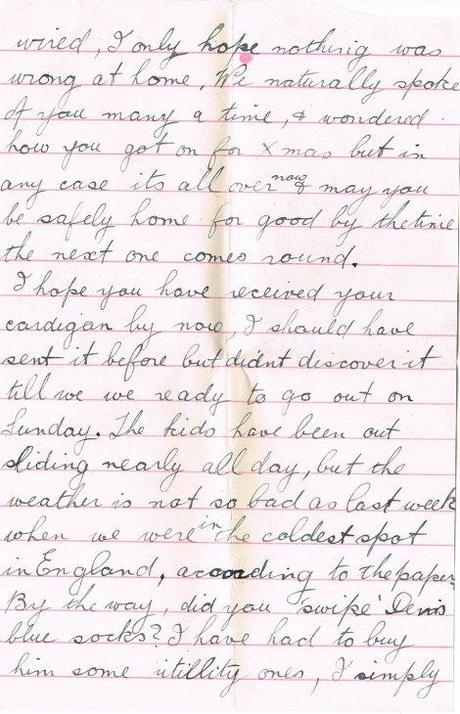 wired, I only hope nothing was
wrong at home. We naturally spoke
of you many a time, & wondered
how you got on for Xmas but in
any case its all over now & may you
be safely home for good by the time
the next one comes round.
I hope you have received your
cardigan by now, I should have
sent it before but didnt discover it
till we we ready to go out on
Sunday. The kids have been out
sliding nearly all day, but the
weather is not so bad as last week
when we were in the coldest spot
in England, according to the paper.
By the way, did you 'swipe' Denis
blue socks? I have had to buy
him some utillity ones, I simply